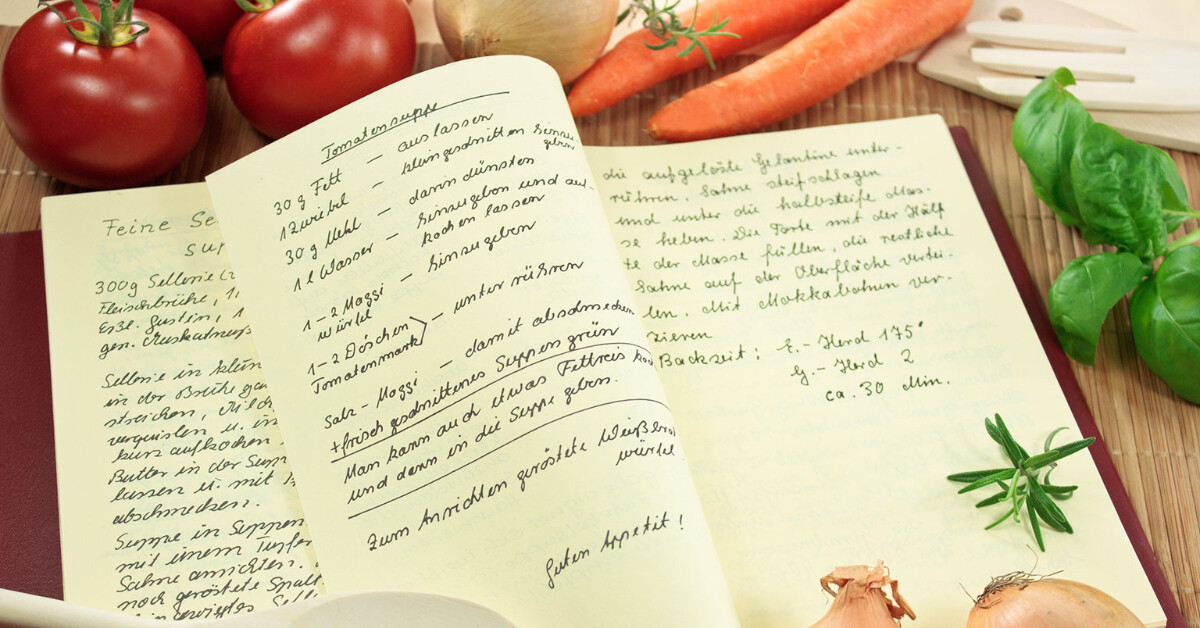 Feine Se
sup
300g Sellerie
Fleischbrühe, 1
Eßl. Gustin, 1
gen. Muskatnuß
Sellerie in klein
in der Brühe ga
streichen, Milch
verquirlen u. in
kurz aufkochen
Butter in der Supp
lassen u. mit
abschmecken.
Suppe in Suppen
mit einem Tupfer
Sahne anrichten.
noch geröstete
Tomatensuppe
30 g Fett — auslassen
1 Zwiebel — kleingeschnitten hinzu
geben
30 g Mehl — darin dünsten
1 l Wasser — hinzugeben und auf-
kochen lassen
1-2 Maggi — hinzugeben
würfel
1-2 Döschen — unterrühren
Tomatenmark
Salz - Maggi — damit abschmecken
+ frisch geschnittenes Suppengrün
Man kann auch etwas Fettreis koch
und dann in die Suppe geben.
Zum Anrichten geröstete Weißbrot
würfel
Guten Appetit!
die aufgelöste Gelantine unter-
rühren. Sahne steifschlagen
und unter die halbsteife Mas-
se heben. Die Torte mit der Hälf
te der Masse füllen, die restliche
Sahne auf der Oberfläche vertei-
len. Mit Mokkabohnen ver-
zieren
Backzeit: E.-Herd 175°
G.-Herd 2
ca. 30 Min.